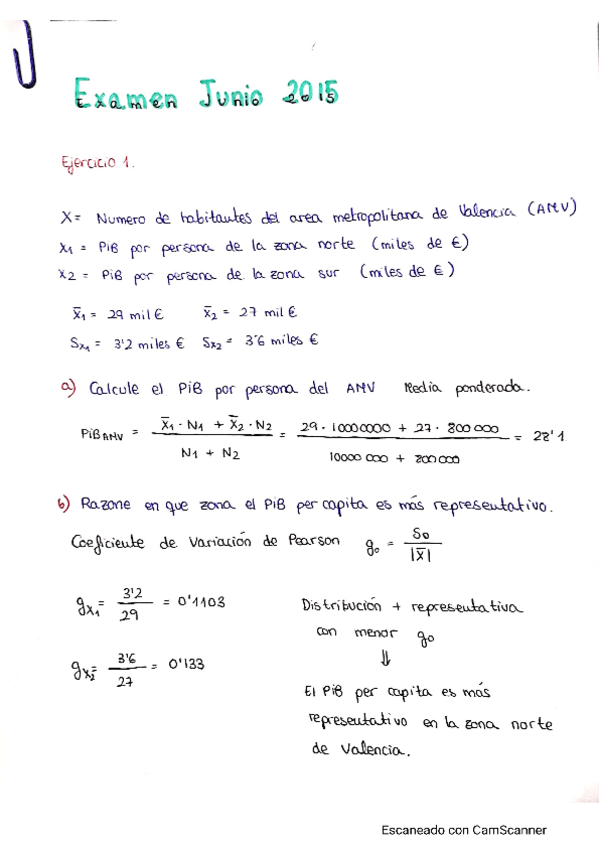 Examen Junio 2015
Ejercicio 1.
X= Numero de habitantes del area metropolitana de Valencia (AMV)
x1 = PiB por persona de la zona norte (miles de €)
x2 = PiB por persona de la zona sur (miles de €)
x̄1 = 29 mil € x̄2 = 27 mil €
Sx1 = 3'2 miles € Sx2 = 3'6 miles €
a) Calcule el PiB por persona del AMV Media ponderada.
PiB AMV = x̄1 · N1 + x̄2 · N2 / N1 + N2 = 29 · 10000000 + 27 · 800 000 / 10000 000 + 800000 = 28'1
b) Razone en que zona el PiB per capita es más representativo.
Coeficiente de Variación de Pearson g0 = S0 / |x̄|
gx1 = 3'2 / 29 = 0'1103
Distribución + representativa
con menor g0
⇓
gx2 = 3'6 / 27 = 0'133
El PiB per capita es más
representativo en la zona norte
de Valencia.
Escaneado con CamScanner